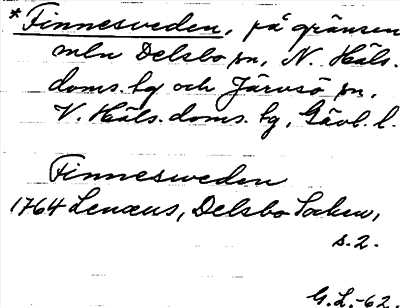 *Finnesveden, på gränsen
mln Delsbo sn, N. Häls.
doms. hg och Järvsö sn,
V. Häls. doms. hg, Gävl. l.
Finnesweden
1764 Lenæus, Delsbo Socken,
s. 2.
G. L. -62.